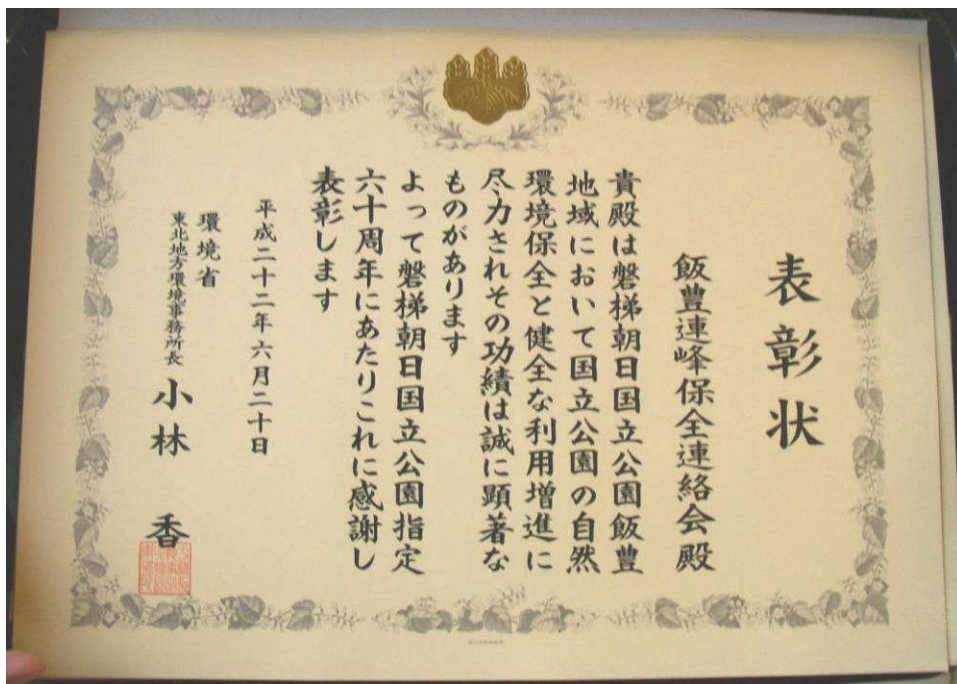 表彰状
飯豊連峰保全連絡会殿
貴殿は磐梯朝日国立公園飯豊
地域において国立公園の自然
環境保全と健全な利用増進に
尽力されその功績は誠に顕著な
ものがあります
よって磐梯朝日国立公園指定
六十周年にあたりこれに感謝し
表彰します
平成二十二年六月二十日
環境省
東北地方環境事務所長
小林 香